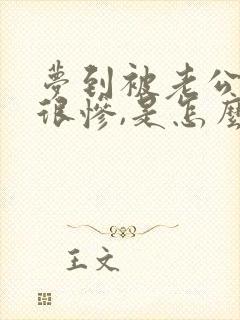 夢到被老公
很慘,是怎麼
王文